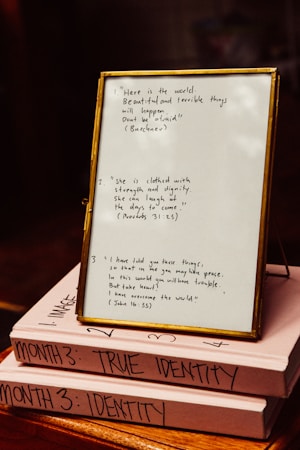 1 "Here is the world.
Beautiful and terrible things
will happen.
Dont be afraid"
(Buechner)
2. "She is clothed with
strength and dignity
she can laugh at
the days to come"
(Proverbs 31:25)
3 "I have told you these things,
so that in me you may have peace.
In this world you will have trouble.
But take heart!
I have overcome the world"
(John 16:33)
1 IMAGE
2
3
4
MONTH 3: TRUE IDENTITY
MONTH 3: IDENTITY